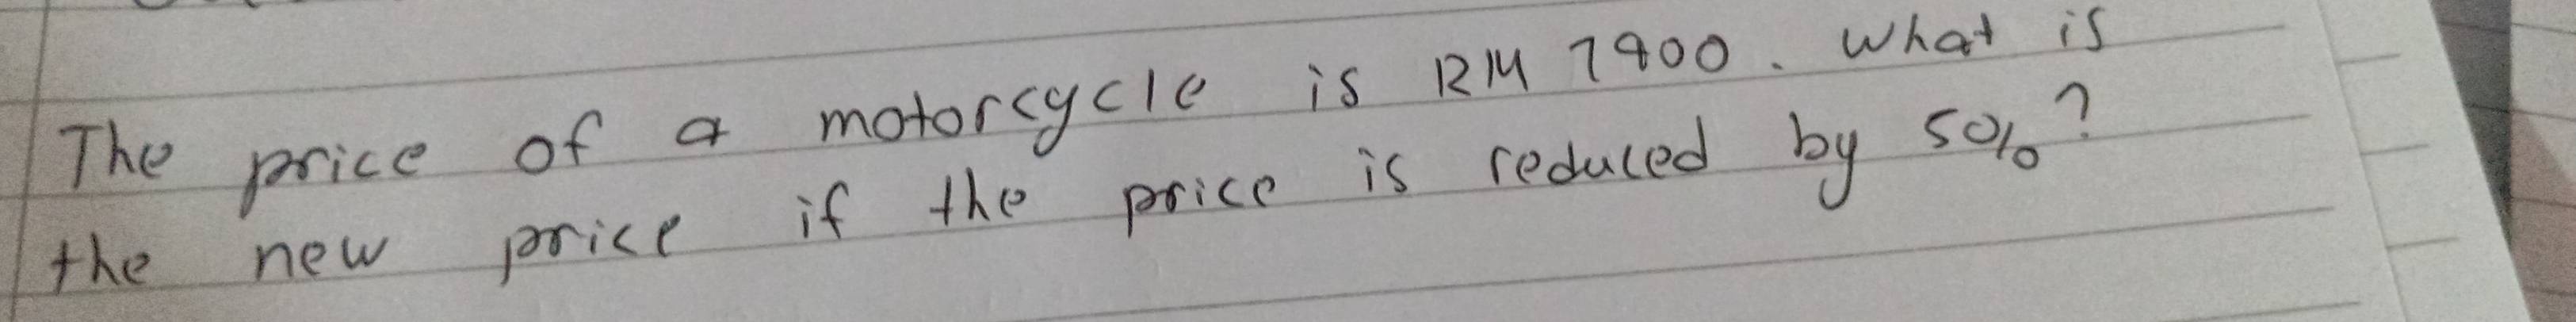 The price of a motorcycle is RM 7900. What is
the new price if the price is reduced by 5%?